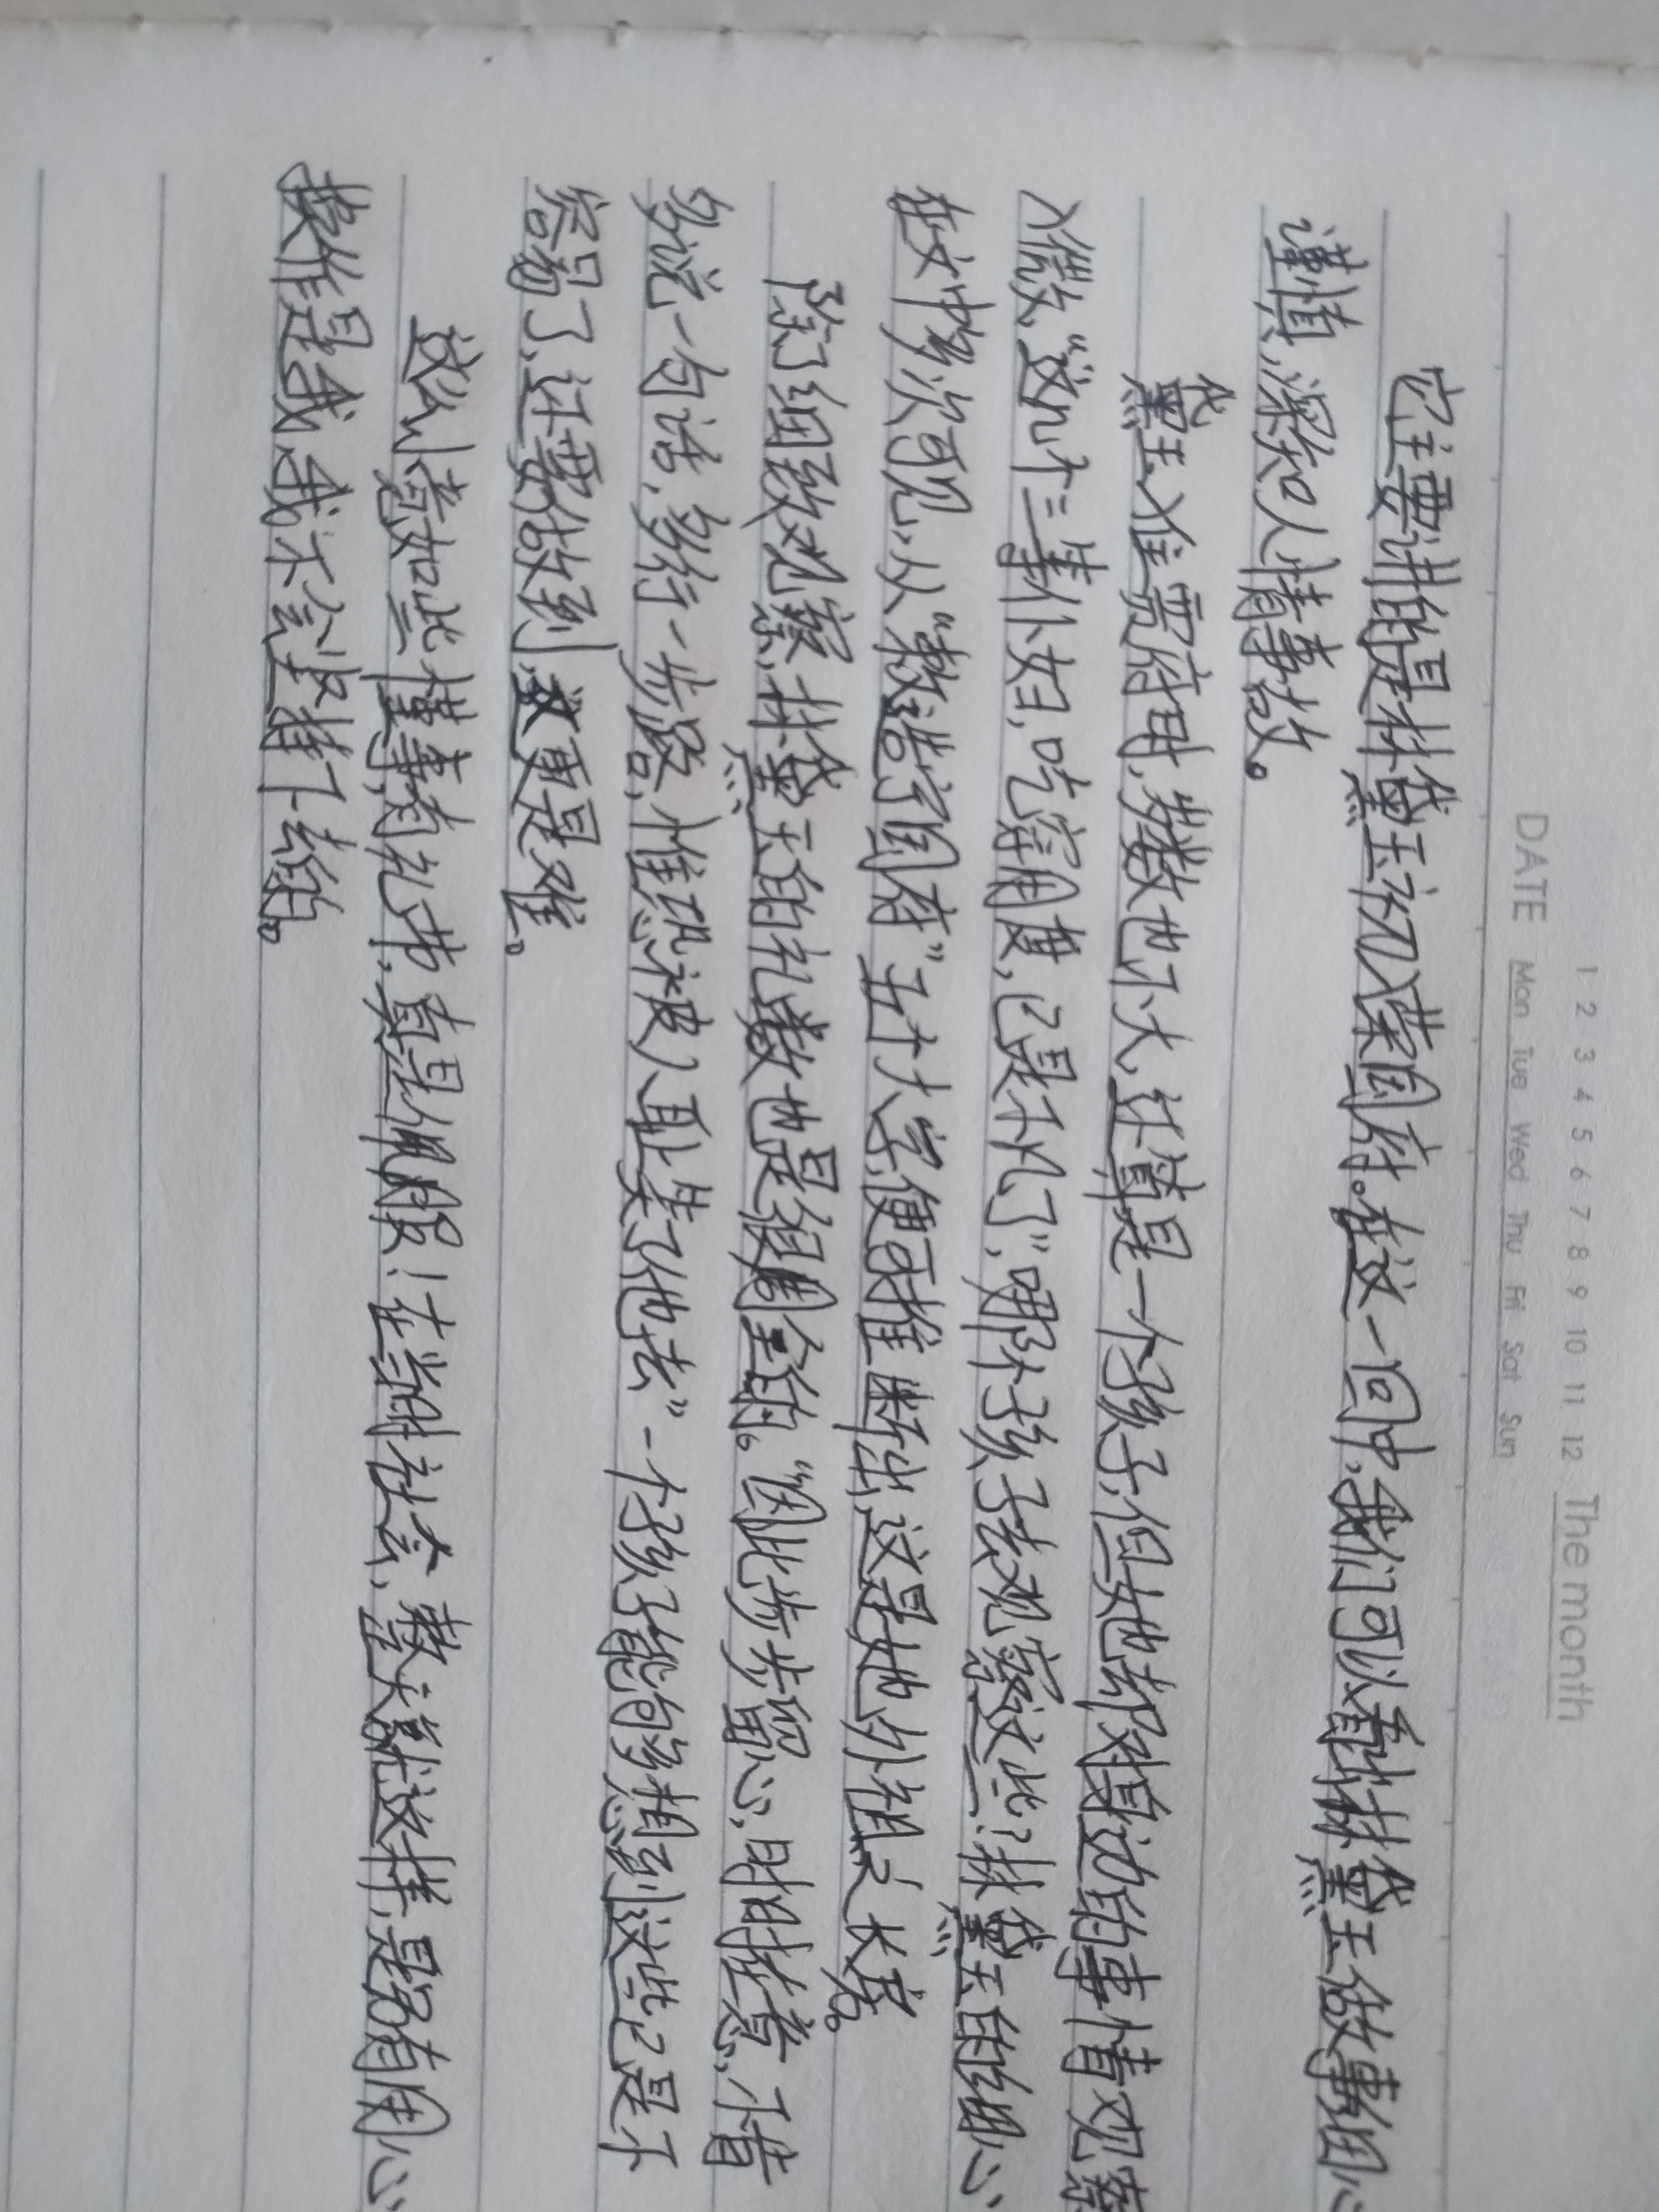 1 2 3 4 5 6 7 8 9 10 11 12 The month
DATE Mon Tue Wed Thu Fri Sat Sun
它主要讲的是林黛玉初入荣国府。在这一回中,我们可以看出林黛玉做事细心
谨慎,深知人情事故。
黛玉入住贾府时,岁数也不大,还算是一个孩子,但她却对身边的事情观察
入微,“这几个三等仆妇,吃穿用度,已是不凡了”,哪个孩子去观察这些?林黛玉的细心
在文中多次可见,从“敕造宁国府”五个大字,便可推断出,这是她外祖之长房。
除了细致观察,林黛玉的礼数也是很周全的。“因此步步留心,时时在意,不肯
多说一句话,多行一步路,惟恐被人耻笑了他去”一个孩子能够想到这些已是不
容易了,还要做到,更是难。
这么小竟如此懂事,有礼节,真是佩服!在当时社会,整天就这样,是多有用心,
换作是我,我不会坚持下去的。